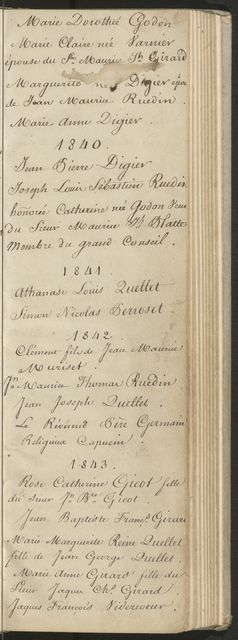 Marie Dorotheé Godon
Marie Claire née Varnier
épouse du Sr Maurice Ph Girard
Marguerite née Digier épse
de Jean Maurice Ruedin.
Marie Anne Digier.
1840.
Jean Pierre Digier
Joseph Louis Sébastien Ruedin
honoré Catherine née Godon
du Sieur Maurice Blatte
Membre du grand Conseil.
1841.
Athanase Louis Quellet
Simon Nicolas Perroset.
1842.
Clément fils de Jean Maurice
Muriset.
Jn Maurice Thomas Ruedin
Jean Joseph Quellet.
Le Révérend Père Germain
Religieux Capucin.
1843.
Rose Catherine Gicot fille
du Sieur Jn Bte Gicot.
Jean Baptiste Franços Girard
Marie Marguerite Reine Quellet
fille de Jean George Quellet.
Marie Anne Girard fille du
Sieur Jaques Chs Girard
Jaques François Videreveur.